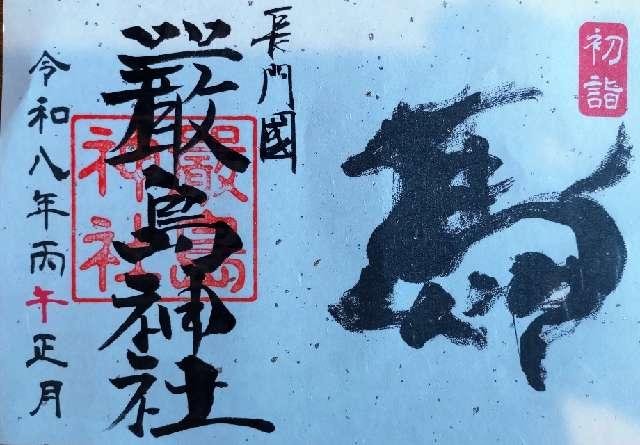 初詣
馬
長門國
嚴島神社
嚴島
神社
令和八年丙午正月